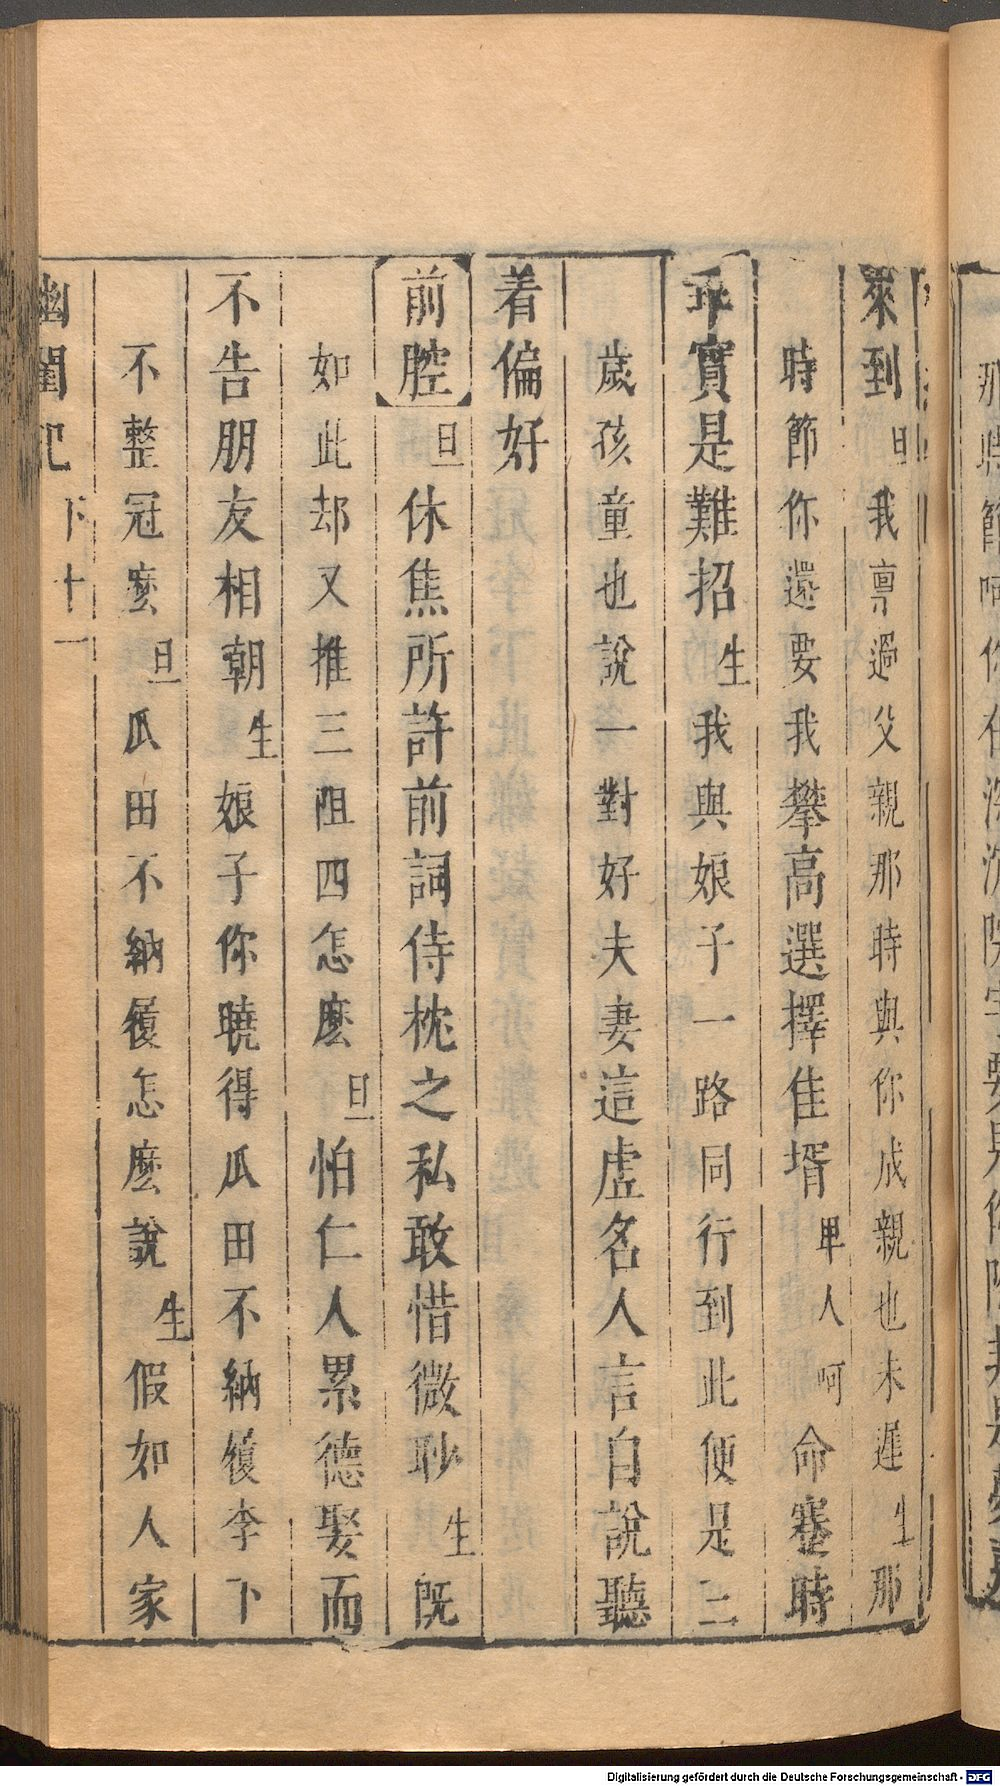 來到旦我禀過父親那時與你成親也未遲生那
時節你還要我攀高選擇佳壻畢人呵命蹇時
乖實是難招生我與娘子一路同行到此便是二
歲孩童也說一對好夫妻這虛名人言自說聽
着偏好
前腔旦休焦所許前詞侍枕之私敢惜微眇生既
如此却又推三阻四怎麽旦怕仁人累德娶而
不告朋友相朝生娘子你曉得瓜田不納履李下
不整冠麽旦瓜田不納履怎麽說生假如人家
幽閨記 下 十一
Digitalisierung gefördert durch die Deutsche Forschungsgemeinschaft - DFG